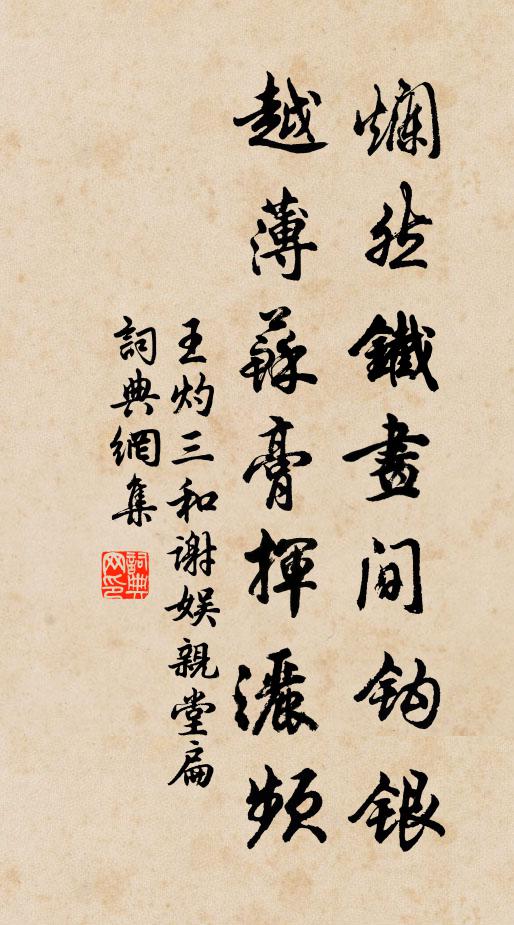 爛然鐵畫間鈎銀
越薄蘇膏揮灑頻
王灼三和謝娱親堂扁
詞典網集
詞典网印